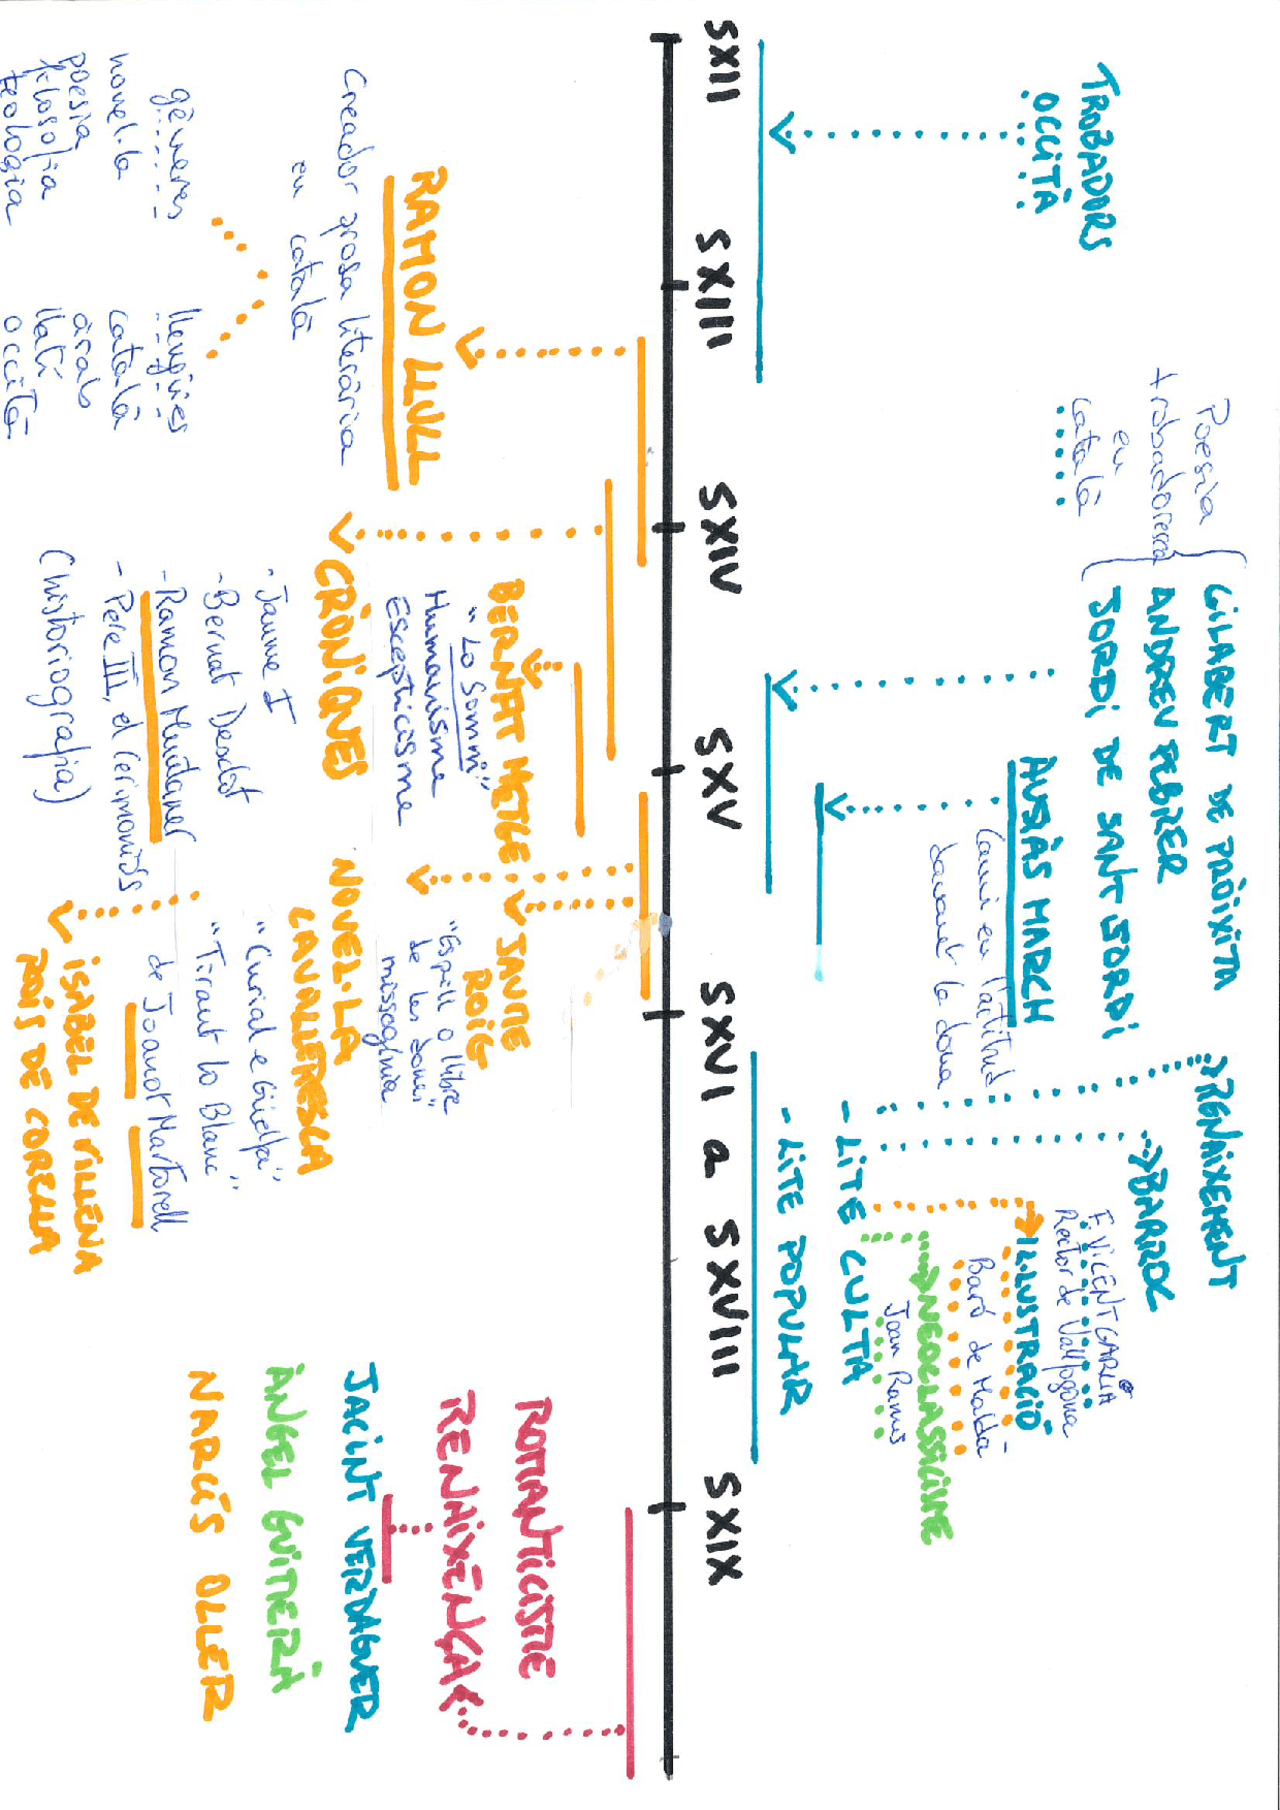 TROBADORS
OCCITÀ
Poesia
trobadoresca
en
català
GILABERT DE PRÒIXITA
ANDREU FEBRER
JORDI DE SANT JORDI
AUSIÀS MARCH
Canvi en l'actitud
davant la dona
RENAIXEMENT
BARROC
F. VICENT GARCIA
Rector de Vallfogona
IL·LUSTRACIÓ
Baró de Maldà
NEOCLASSICISME
Joan Ramis
- LITE CULTA
- LITE POPULAR
SXII
SXIII
SXIV
SXV
SXVI a SXVIII
SXIX
RAMON LLULL
Creador prosa literària
en català
gèneres
novel·la
poesia
filosofia
teologia
llengües
català
àrab
llatí
occità
CRÒNIQUES
- Jaume I
- Bernat Desclot
- Ramon Muntaner
- Pere III, el Cerimoniós
(historiografia)
BERNAT METGE
"Lo Somni"
Humanisme
Escepticisme
JAUME
ROIG
"Espill o llibre
de les dones"
misogínia
NOVEL·LA
CAVALLERESCA
"Curial e Güelfa"
"Tirant lo Blanc"
de Joanot Martorell
ISABEL DE VILLENA
ROIS DE CORELLA
ROMANTICISME
RENAIXENÇA
JACINT VERDAGUER
ÀNGEL GUIMERÀ
NARCÍS OLLER